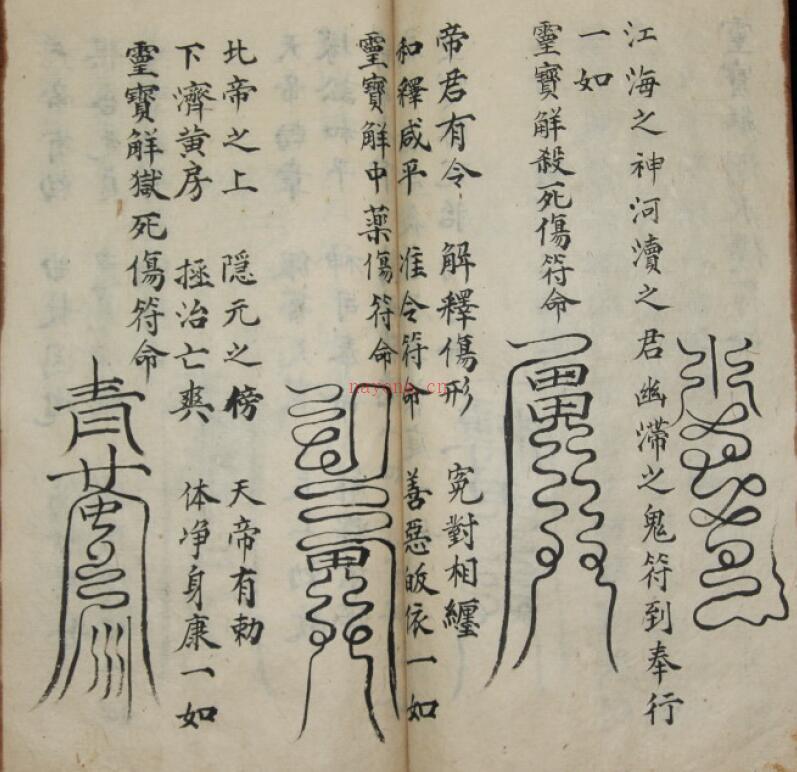 江海之神河瀆之君幽滯之鬼符到奉行
一如
靈寶解殺死傷符命
帝君有令 解釋傷形 寃對相纏
和釋咸平 准令符命 善惡皈依一如
靈寶解中藥傷符命
北帝之上 隠元之傍 天帝有勅
下濟黃房 拯治亡爽 体净身康一如
靈寶解獄死傷符命
nayona.cn